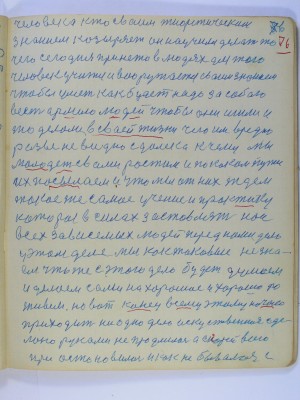 76
человека кто своим теоретическим
знанием козыряет он научил делать то
76
чего сегодня принято в людях для того
человек учит и вооружается своим знанием
чтобы идти как будет надо за собою
весть армию людей чтобы они шли и
то делали, в своей жизни чего им вредно
разве не видно с далека к чему мы
молодежь свою растим и по каком пути
их посылаем и что мы от них ждем
такое же самое учение и практику
которая в силах заставлять нас
всех зависимых людей перед нами дело
у этом деле мы как таковые не зна-
ем что же с этого дела будет думаем
и делаем сами на хорошее и хорошо по
живем, но вот конец всему этому
приходит ни одно дело искусственная сде-
лано руками не продлилось а взяло всего
при остановилось и как не бывало, с